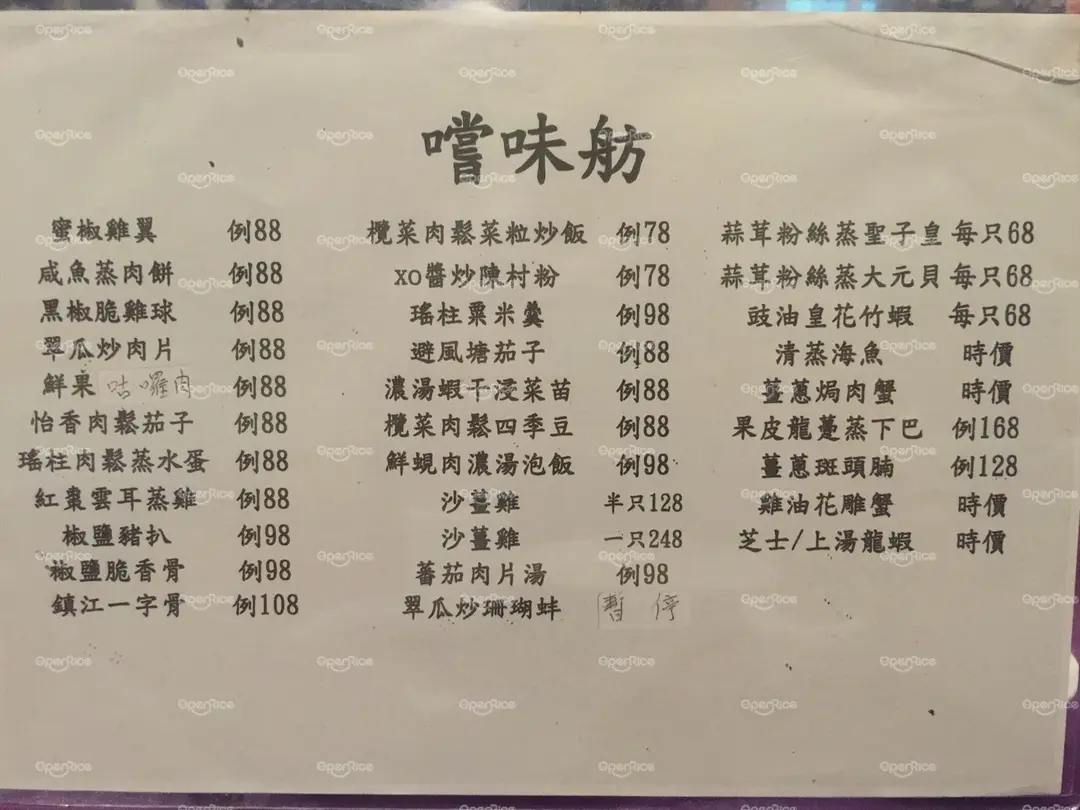 嚐味舫
蜜椒雞翼 例88
咸魚蒸肉餅 例88
黑椒脆雞球 例88
翠瓜炒肉片 例88
鮮果咕嚕肉 例88
怡香肉鬆茄子 例88
瑤柱肉鬆蒸水蛋 例88
紅棗雲耳蒸雞 例88
椒鹽豬扒 例98
椒鹽脆香骨 例98
鎮江一字骨 例108
欖菜肉鬆菜粒炒飯 例78
xo醬炒陳村粉 例78
瑤柱粟米羹 例98
避風塘茄子 例88
濃湯蝦干浸菜苗 例88
欖菜肉鬆四季豆 例88
鮮蜆肉濃湯泡飯 例98
沙薑雞 半只128
沙薑雞 一只248
蕃茄肉片湯 例98
翠瓜炒珊瑚蚌 暫停
蒜茸粉絲蒸聖子皇 每只68
蒜茸粉絲蒸大元貝 每只68
豉油皇花竹蝦 每只68
清蒸海魚 時價
薑蔥焗肉蟹 時價
果皮龍躉蒸下巴 例168
薑蔥斑頭腩 例128
雞油花雕蟹 時價
芝士/上湯龍蝦 時價
OpenRice